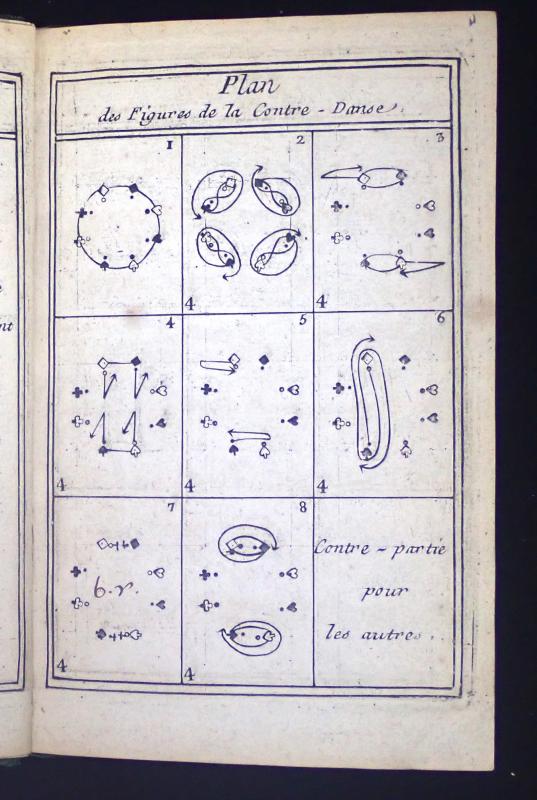 Plan
des Figures de la Contre - Danse.
1
2
3
4
4
4
5
6
4
4
4
7
8
6.r.
4
4
Contre - partie
pour
les autres.